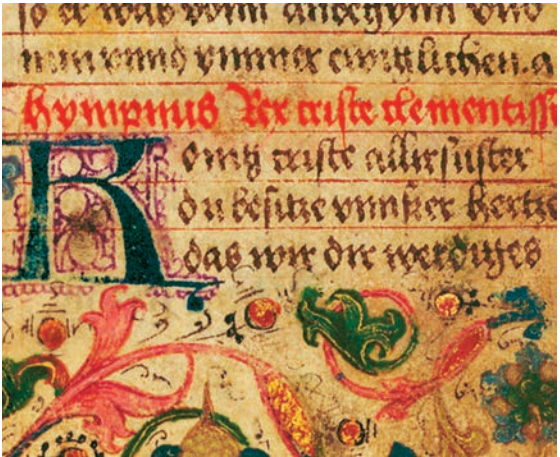 so er was vonn anegynn vnd
nun vnnd ymmer ewigklichen. a
hympnus Rex criste clementiss
Konig criste allersuster
du besitze vnnser hertz
das wir dir werdiges